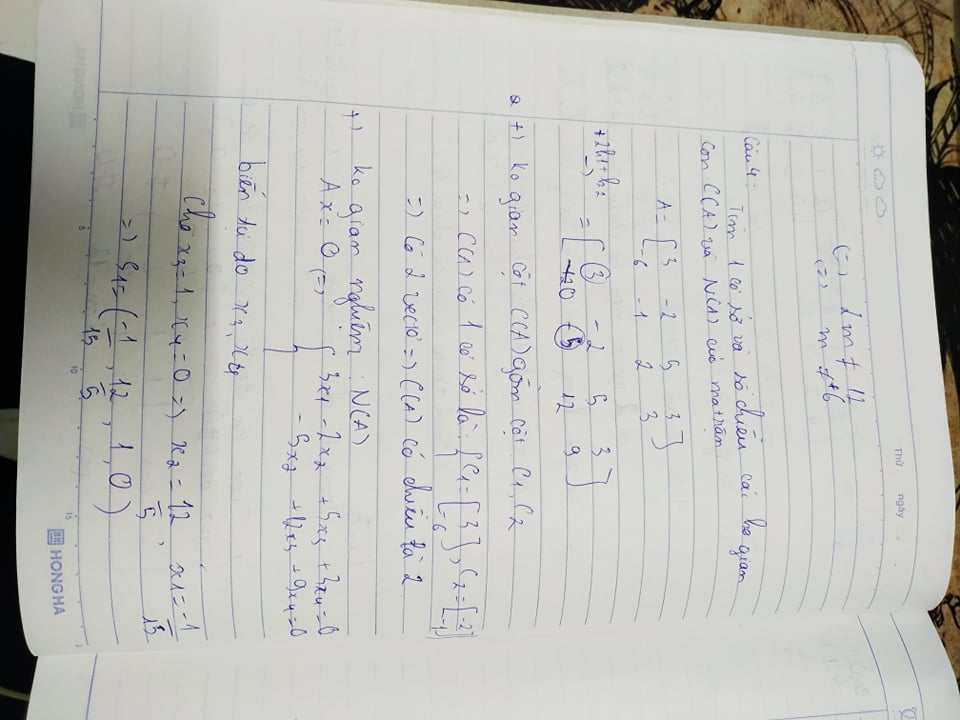 Thứ ngày
(=) 2m ≠ 12
(=) m ≠ +6
Câu 4:
Tìm 1 cơ sở và số chiều các ko gian
con C(A) và N(A) của ma trận
A = [ 3 -2 5 3
-6 -1 2 3 ]
+2h1+h2
→ = [ 3 -2 5 3
0 -5 12 9 ]
+) ko gian cột C(A) gồm cột: C1, C2
=) C(A) có 1 cơ sở là: { C1 = [ 3 -6 ], C2 = [ -2 -1 ]
=) Có 2 vectơ =) C(A) có chiều là 2
+) ko gian nghiệm : N(A)
Ax = 0 (=) { 3x1 - 2x2 + 5x3 + 3x4 = 0
- 5x2 + 12x3 + 9x4 = 0
biến tự do x3, x4
Cho x3 = 1, x4 = 0 =) x2 = 12/5, x1 = -1/15
=) S1 = ( -1/15, 12/5, 1, 0 )
5 10 15
HONG HA